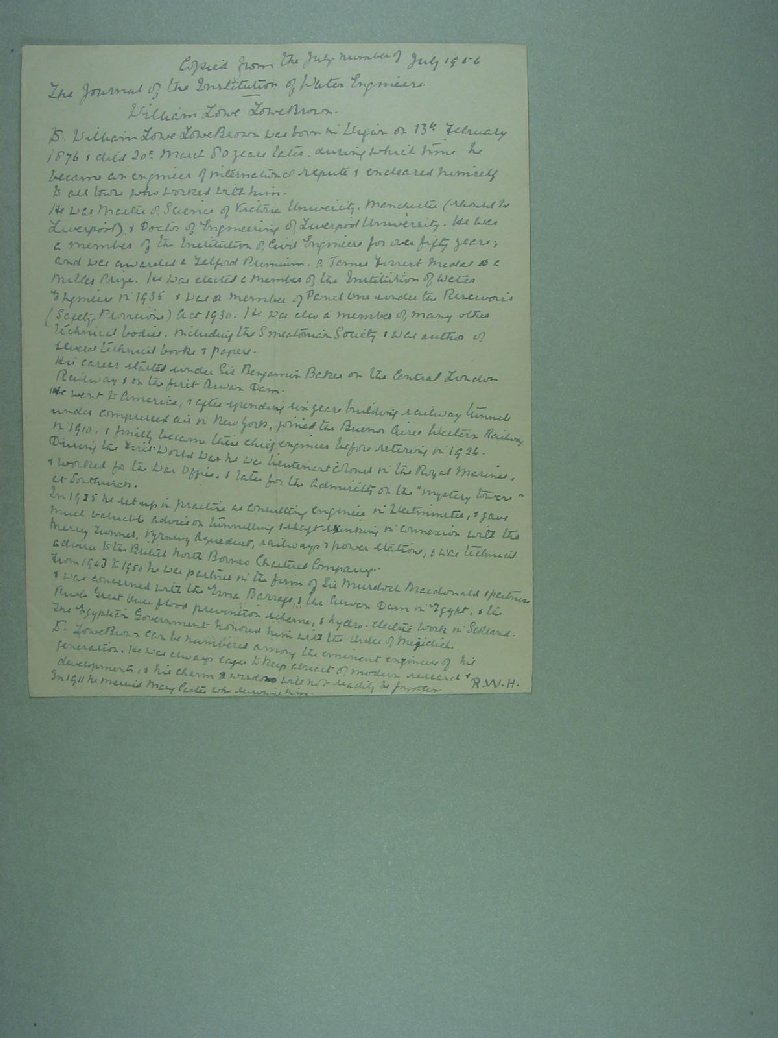 Copied from the July number of July 1956
The Journal of the Institution of Water Engineers
William Lowe LoweBrown.
Dr. William Lowe LoweBrown was born in Wigan on 13th February
1876 & died 20th March 80 years later, during which time he
became an engineer of international repute & endeared himself
to all those who worked with him.
He was Master of Science of Victoria University, Manchester (
Liverpool), & Doctor of Engineering of Liverpool University. He was
a member of the Institution of Civil Engineers for over fifty years,
and was awarded a Telford Premium, a James Forrest Medal & a
Miller Prize. He was elected a member of the Institution of Water
Engineers in 1935 & was a member of Panel One under the Reservoirs
(Safety Provisions) Act 1930. He was also a member of many other
technical bodies, including the Smeatonian Society & was author of
several technical books & papers.
His career started under Sir Benjamin Baker on the Central London
Railway & on the first Aswan Dam.
He went to America, & after spending six years building railway tunnels
under compressed air in New York, joined the Buenos Aires Western Railway
in 1910, & finally became later chief engineer before retiring in 1926.
During the First World War he was lieutenant colonel in the Royal Marines,
& worked for the War Office, & later for the Admiralty on the "mystery towers"
at Southwick.
In 1935 he set up in practice as consulting engineer in Westminster, & gave
much valuable advice on tunnelling & shaft sinking in connexion with the
Mersey Tunnel, Vyrnwy Aqueduct, railways & power stations, & was technical
adviser to the British North Borneo Chartered Company.
From 1943 to 1950 he was partner in the firm of Sir Murdoch Macdonald & partners
& was concerned with the Esna Barrage, & the Aswan Dam in Egypt, & the
River Great Ouse flood prevention scheme, & hydro-electric work in Scotland.
The Egyptian Government honoured him with the Order of Mejidieh.
Dr. LoweBrown can be numbered among the eminent engineers of his
generation. He was always eager to keep abreast of modern research &
developments, & his charm & wisdom will not readily be forgotten
In 1911 he married Mary who survives him. R.W.H.